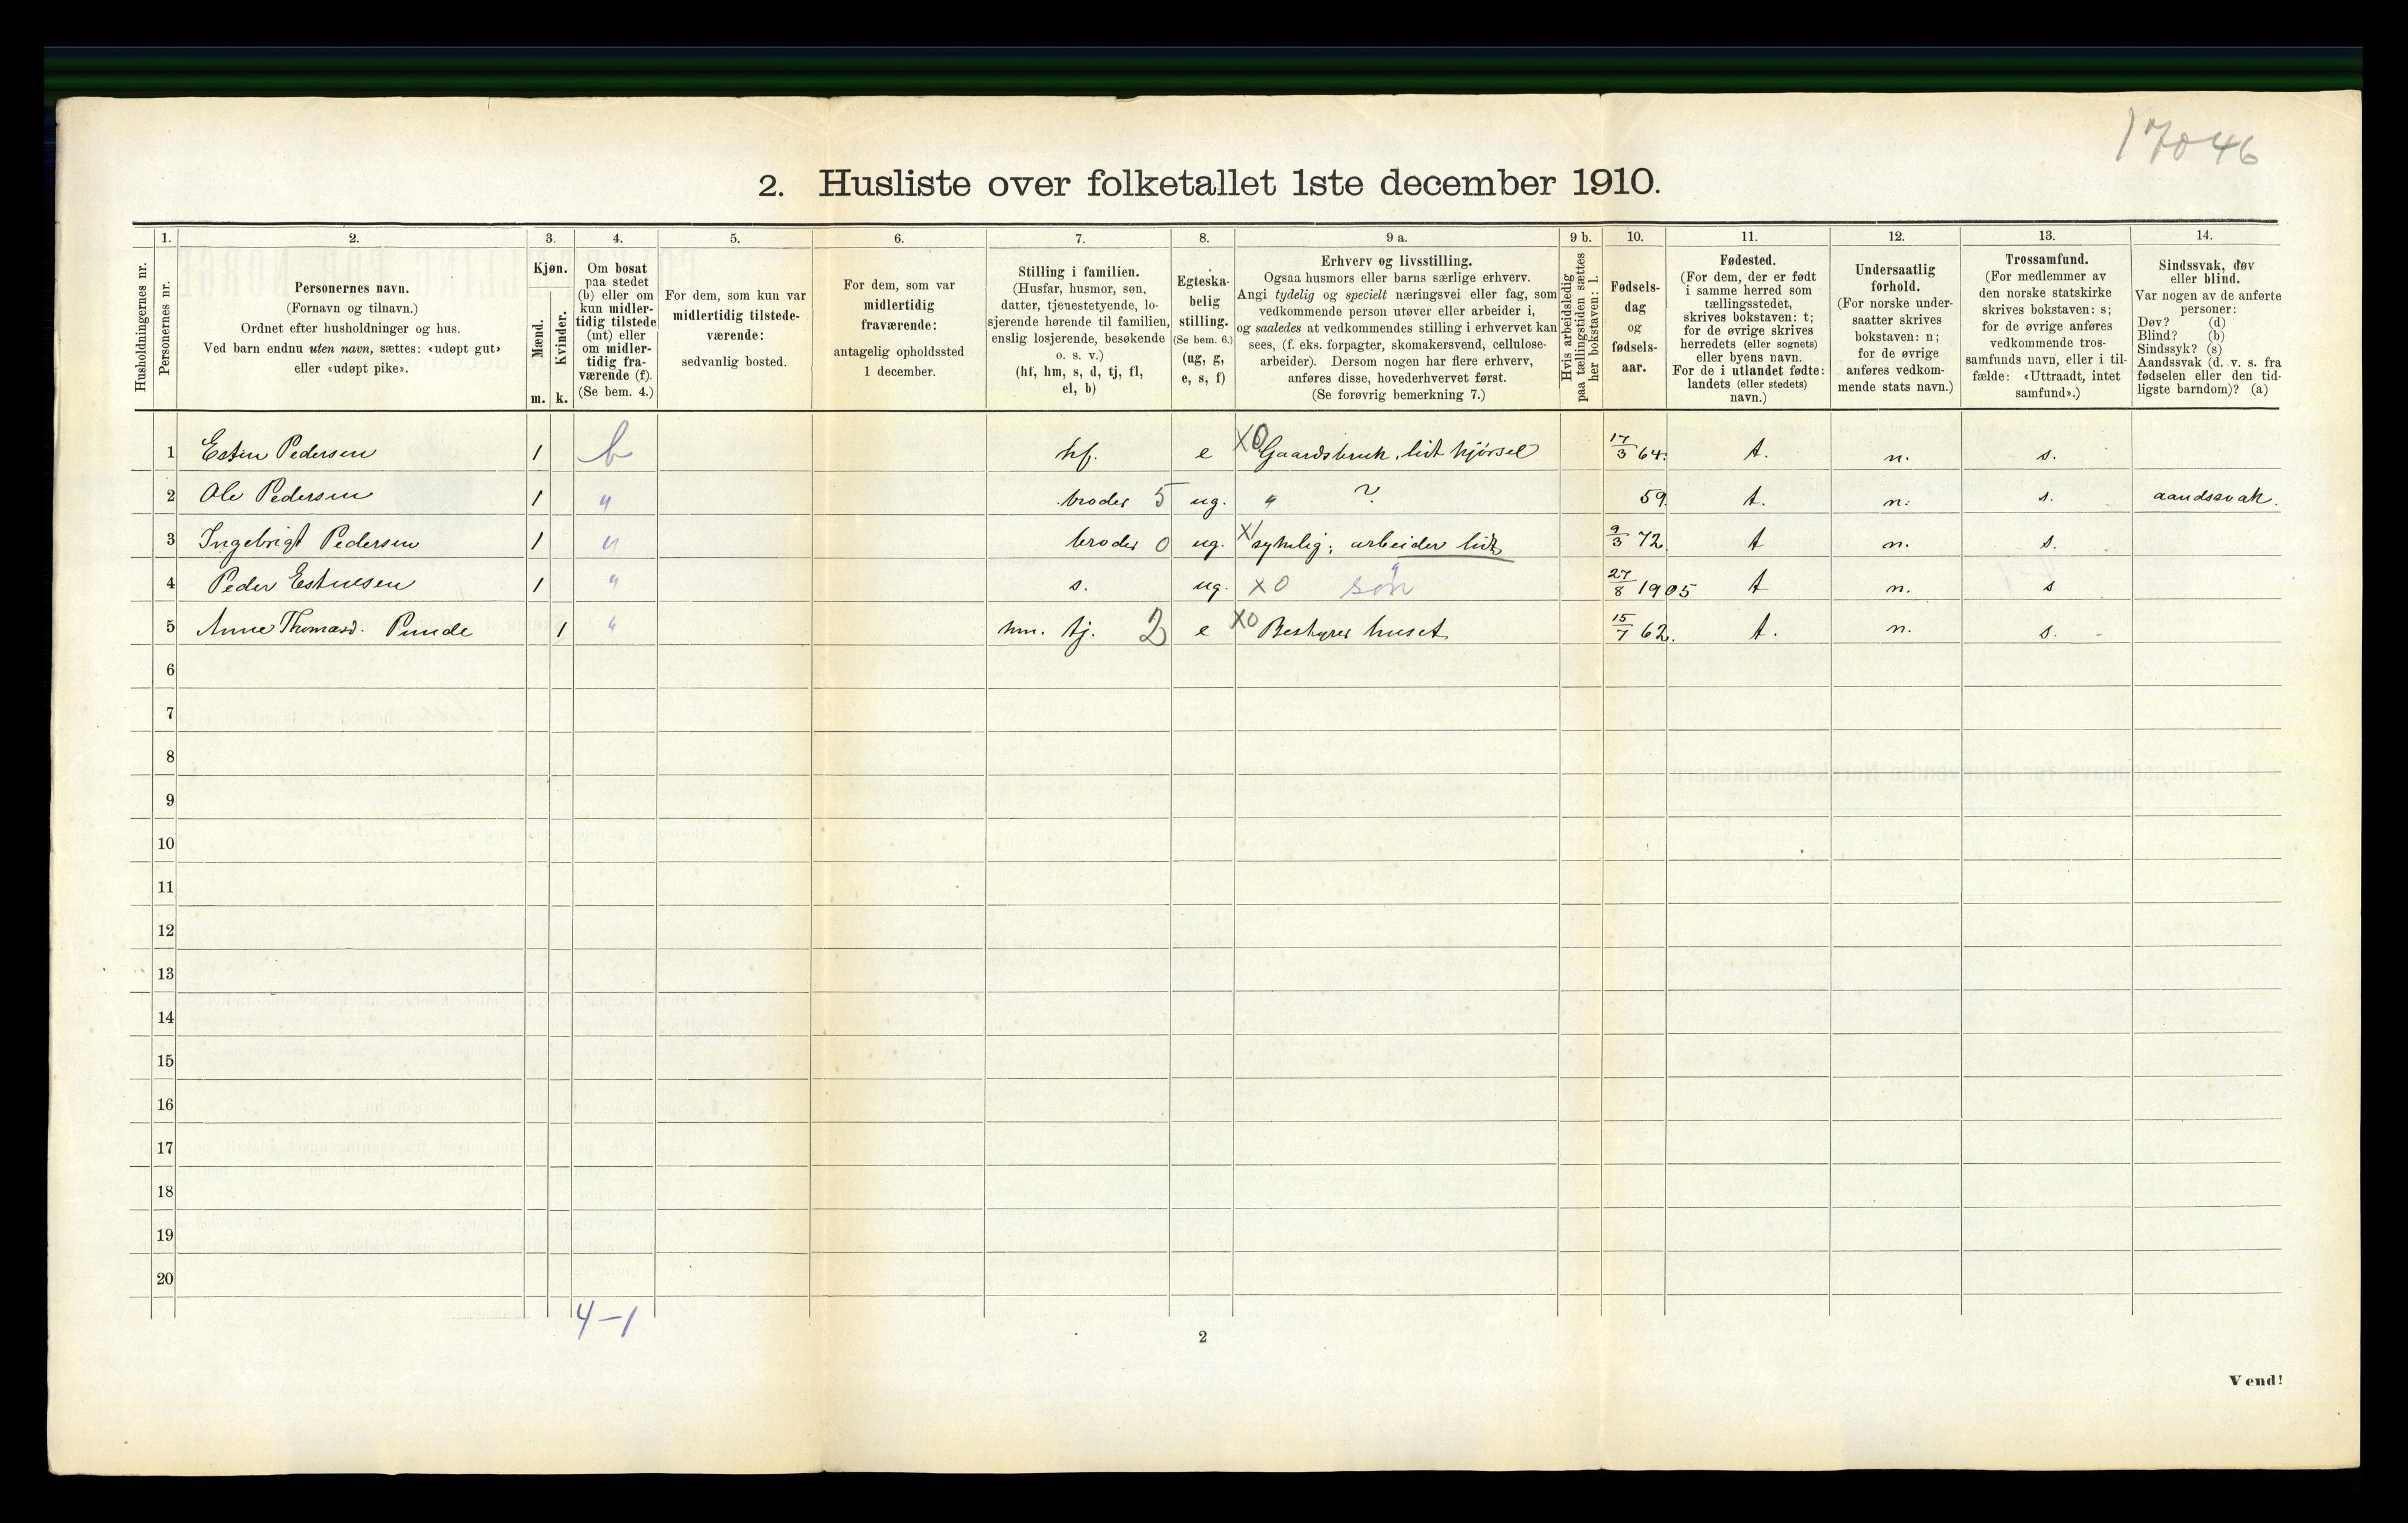 17046
2. Husliste over folketallet 1ste december 1910.
Husholdningernes nr.
1. Personernes nr.
2. Personernes navn.
(Fornavn og tilnavn.)
Ordnet efter husholdninger og hus.
Ved barn endnu uten navn, sættes: «udøpt gut»
eller «udøpt pike».
3. Kjøn.
Mænd. m.
Kvinder. k.
4. Om bosat
paa stedet
(b) eller om
kun midler-
tidig tilstede
(mt) eller
om midler-
tidig fra-
værende (f).
(Se bem. 4.)
5. For dem, som kun var
midlertidig tilstede-
værende:
sedvanlig bosted.
6. For dem, som var
midlertidig
fraværende:
antagelig opholdssted
1 december.
7. Stilling i familien.
(Husfar, husmor, søn,
datter, tjenestetyende, lo-
sjerende hørende til familien,
enslig losjerende, besøkende
o. s. v.)
(hf, hm, s, d, tj, fl,
el, b)
8. Egteska-
belig
stilling.
(Se bem. 6.)
(ug, g,
e, s, f)
9 a. Erhverv og livsstilling.
Ogsaa husmors eller barns særlige erhverv.
Angi tydelig og specielt næringsvei eller fag, som
vedkommende person utøver eller arbeider i,
og saaledes at vedkommendes stilling i erhvervet kan
sees, (f. eks. forpagter, skomakersvend, cellulose-
arbeider). Dersom nogen har flere erhverv,
anføres disse, hovederhvervet først.
(Se forøvrig bemerkning 7.)
9 b. Hvis arbeidsledig
paa tællingstiden sættes
her bokstaven: l.
10. Fødsels-
dag
og
fødsels-
aar.
11. Fødested.
(For dem, der er født
i samme herred som
tællingsstedet,
skrives bokstaven: t;
for de øvrige skrives
herredets (eller sognets)
eller byens navn.
For de i utlandet fødte:
landets (eller stedets)
navn.)
12. Undersaatlig
forhold.
(For norske under-
saatter skrives
bokstaven: n;
for de øvrige
anføres vedkom-
mende stats navn.)
13. Trossamfund.
(For medlemmer av
den norske statskirke
skrives bokstaven: s;
for de øvrige anføres
vedkommende tros-
samfunds navn, eller i til-
fælde: «Uttraadt, intet
samfund».)
14. Sindssvak, døv
eller blind.
Var nogen av de anførte
personer:
Døv? (d)
Blind? (b)
Sindssyk? (s)
Aandssvak (d. v. s. fra
fødselen eller den tid-
ligste barndom)? (a)
1 Esten Pedersen 1 b hf. e X0 Gaardsbruk, lidt kjørsel 17/3 64. t. n. s.
2 Ole Pedersen 1 " broder 5 ug. " ? 59. t. n. s. aandssvak.
3 Ingebrigt Pedersen 1 " broder 0 ug. X sykelig; arbeider lidt 9/3 72. t n. s.
4 Peder Estensen 1 " s. ug. X0 søn 27/8 1905 t n. s
5 Anne Thomasd. Punde 1 " hm. tj. 2 e X0 Bestyrer huset 15/7 62. t. n. s.
6
7
8
9
10
11
12
13
14
15
16
17
18
19
20
4-1
2
Vend!